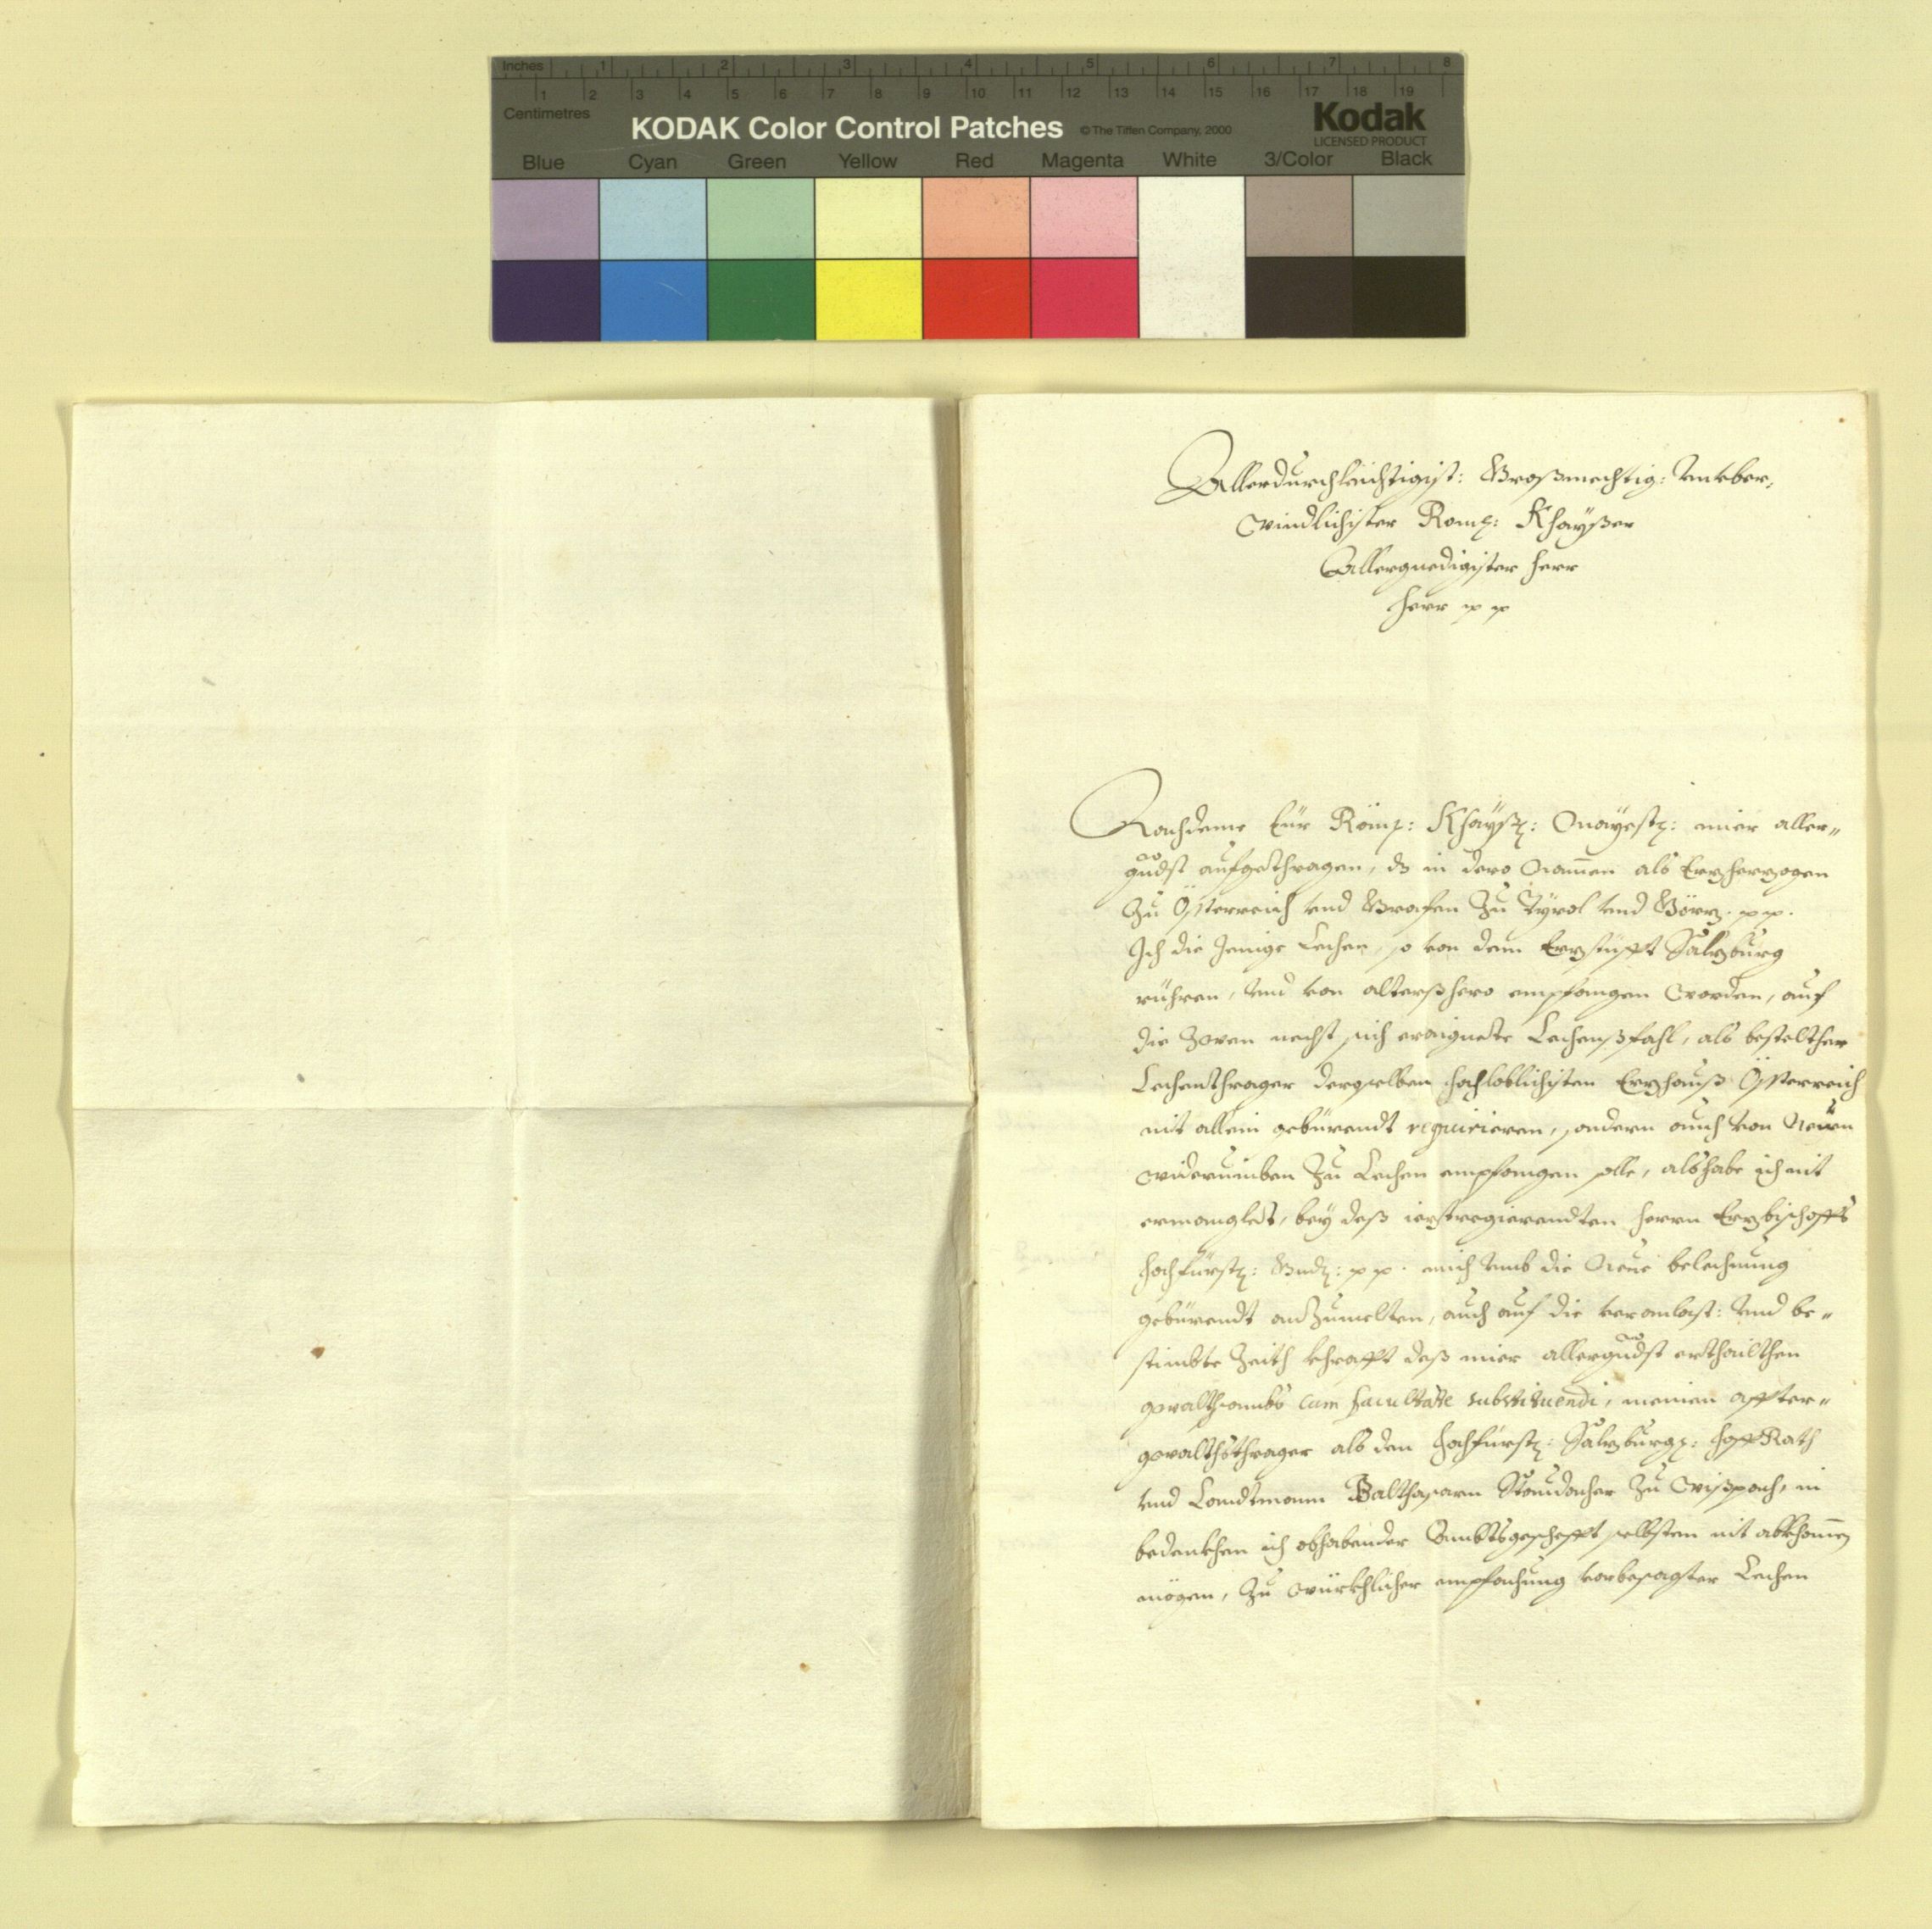 Inches 1 2 3 4 5 6 7 8
1 2 3 4 5 6 7 8 9 10 11 12 13 14 15 16 17 18 19
Centimetres
KODAK Color Control Patches © The Tiffen Company, 2000 Kodak
LICENSED PRODUCT
Blue Cyan Green Yellow Red Magenta White 3/Color Black
Allerdurchleichtigist: Großmechtig: Vnüber,
windlichister Röm: Khayßer
Allergnedigister Herr
Herr pp
Nachdeme Eür Röm: Khayß: Mayest: mier aller„
gndst aufgethragen, dz in dero Namen als Erzherzogen
Zu Össterreich vnd Grafen Zu Tÿrol vnd Görz. pp.
Ich die Jenige Lechen, so von dem Erzstüfft Salzburg
rühren, vnd von altershero empfangen worden, auf
die Zwen nechst sich eraignete Lechensfahl, als bestelther
Lechenthrager dergselben hochloblichisten Erzhauß Össterreich
nit allein gebürendt requirieren, sondern auch von Neüen
widerumben Zu Lechen empfangen solle, als habe ich nit
ermanglet, bey deß ieztregierendten Herrn Erzbischoffs
Hochfürstl: Gnd: pp. mich vmb die Neue belechnung
gebürendt anZumelten, auch auf die veranlast: vnd be„
stimbte Zeith khrafft deß mier allergndst erthailthen
gwalthsambs cum facultate substituendi, meinen affter„
gwalthsthrager als den Hochfürstl: Salzburg: HoffRath
vnd Landtmann Balthasarn Staudacher Zu Wißpach, in
bedenkhen ich obhabender Ambtsgeschefft selbsten nit abkhomen
mögen, Zu würkhlicher empfachung vorbesagter Lechen